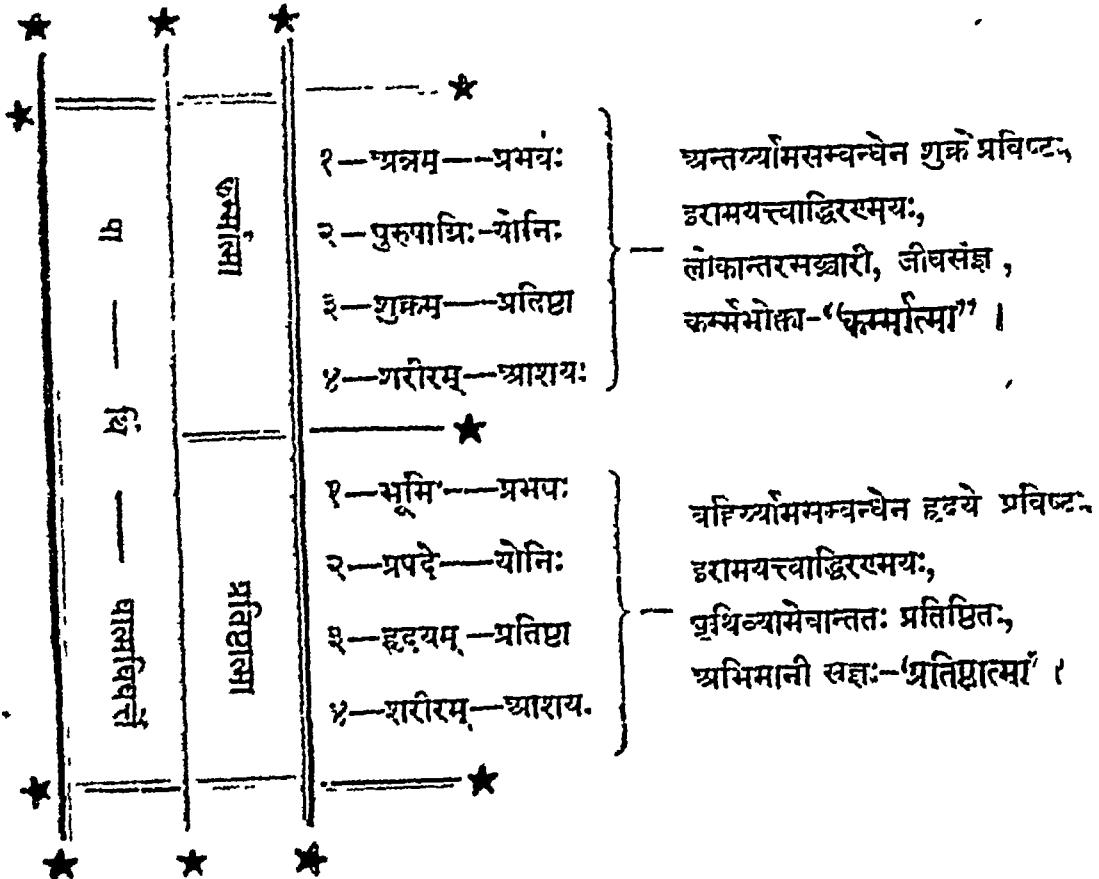 पा — थि — वात्मविवर्त्तो
कर्म्मात्मा
१—अन्नम्——प्रभवः
२—पुरुषाग्निः—योनिः
३—शुक्रम्——प्रतिष्ठा
४—शरीरम्—आशयः
अन्तर्य्यामसम्बन्धेन शुक्रे प्रविष्टः,
इरामयत्त्वाद्धिरण्मयः,
लोकान्तरसञ्चारी, जीवसंज्ञ,
कर्म्मभोक्ता-“कर्म्मात्मा” ।
प्रतिष्ठात्मा
१—भूमिः——प्रभवः
२—प्रपदे——योनिः
३—हृदयम्—प्रतिष्ठा
४—शरीरम्—आशय.
वहिर्य्यामसम्बन्धेन हृदये प्रविष्टः,
इरामयत्त्वाद्धिरण्मयः,
पृथिव्यामेवान्ततः प्रतिष्ठितः,
अभिमानी सज्ञः-‘प्रतिष्ठात्मा’ ।